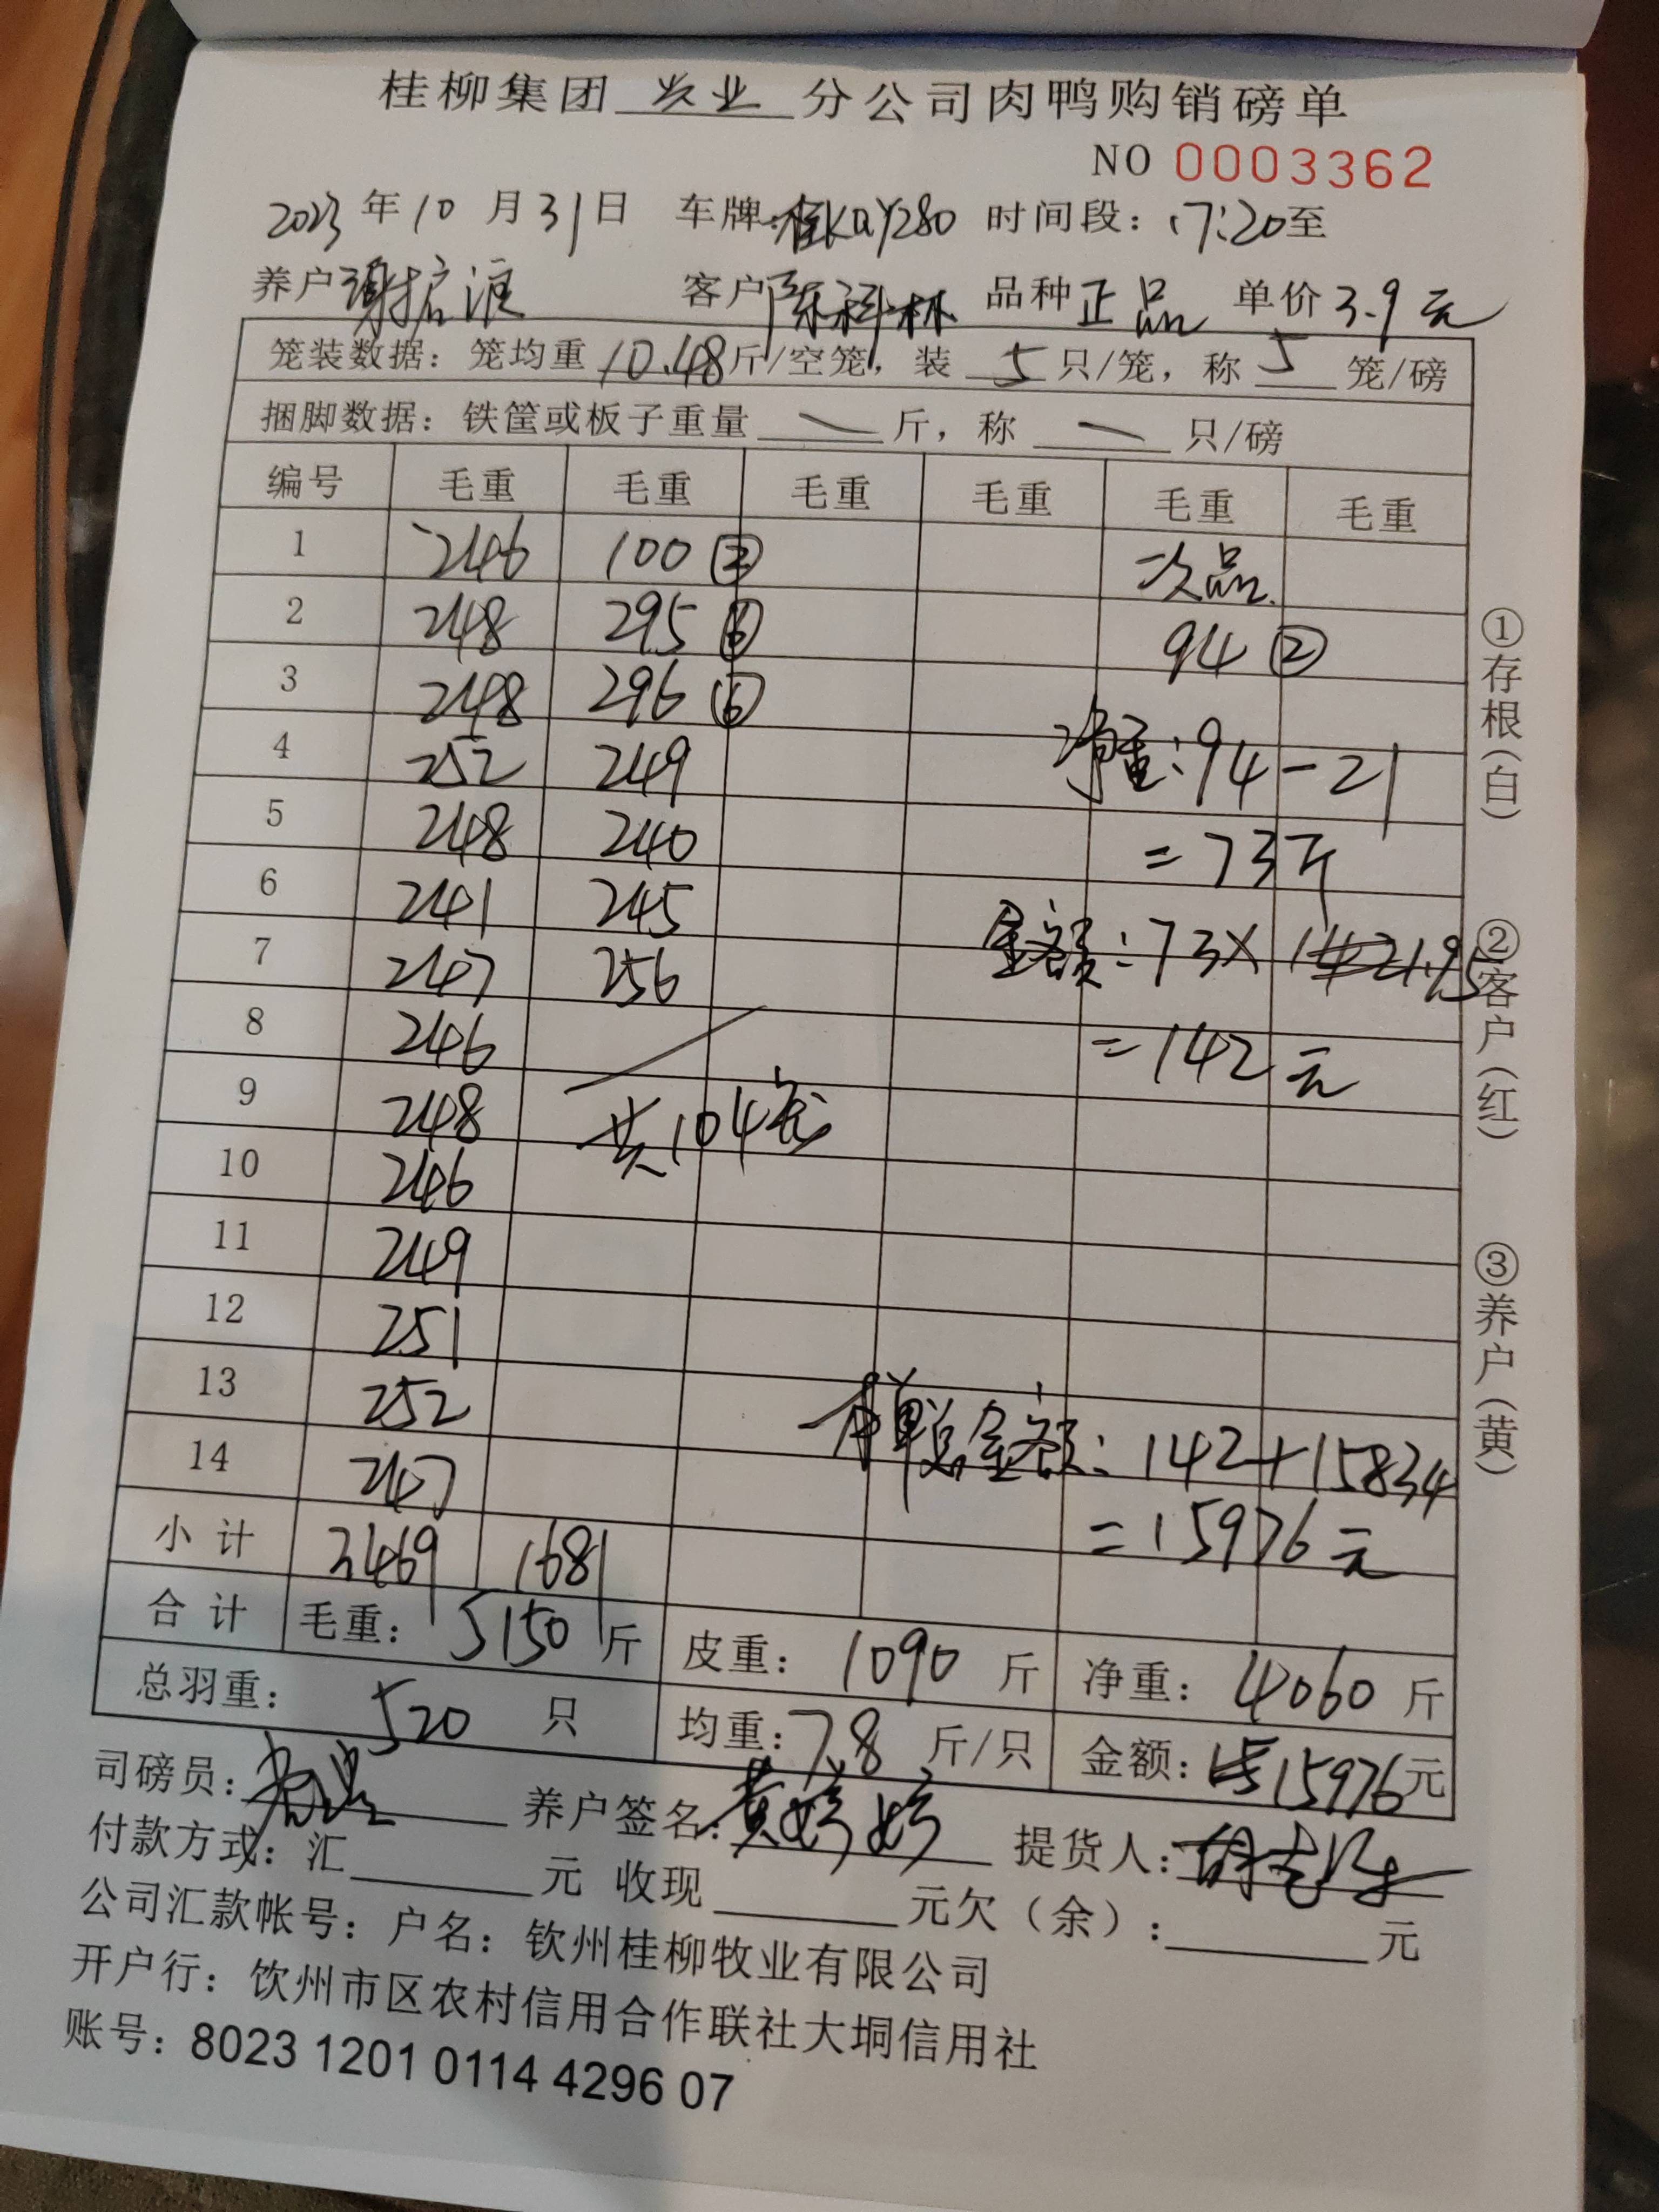 桂柳集团 兴业 分公司肉鸭购销磅单
NO 0003362
2023年10月31日 车牌:桂KQY280 时间段:17:20至
养户 客户陈科林 品种正品 单价3.9元
笼装数据:笼均重10.48斤/空笼,装5只/笼,称5笼/磅
捆脚数据:铁筐或板子重量 — 斤,称 — 只/磅
编号 毛重 毛重 毛重 毛重 毛重 毛重
1 246 100② 次品.
2 248 295⑥ 94②
3 248 296⑥
4 252 249 净重:94-21
5 248 240 =73斤
6 241 245
7 247 256 金额:73×1.95
8 246 =142元
9 248 共104笼
10 246
11 249
12 251
13 252
14 247 本单总金额:142+15834
=15976元
小计 3469 1681
合计 毛重:5150斤 皮重:1090斤 净重:4060斤
总羽重:520只 均重:7.8斤/只 金额:15976元
司磅员: 养户签名:黄婷婷 提货人:
付款方式:汇 元 收现 元欠(余): 元
公司汇款帐号:户名:钦州桂柳牧业有限公司
开户行:饮州市区农村信用合作联社大垌信用社
账号:8023 1201 0114 4296 07
①存根(白)
②客户(红)
③养户(黄)